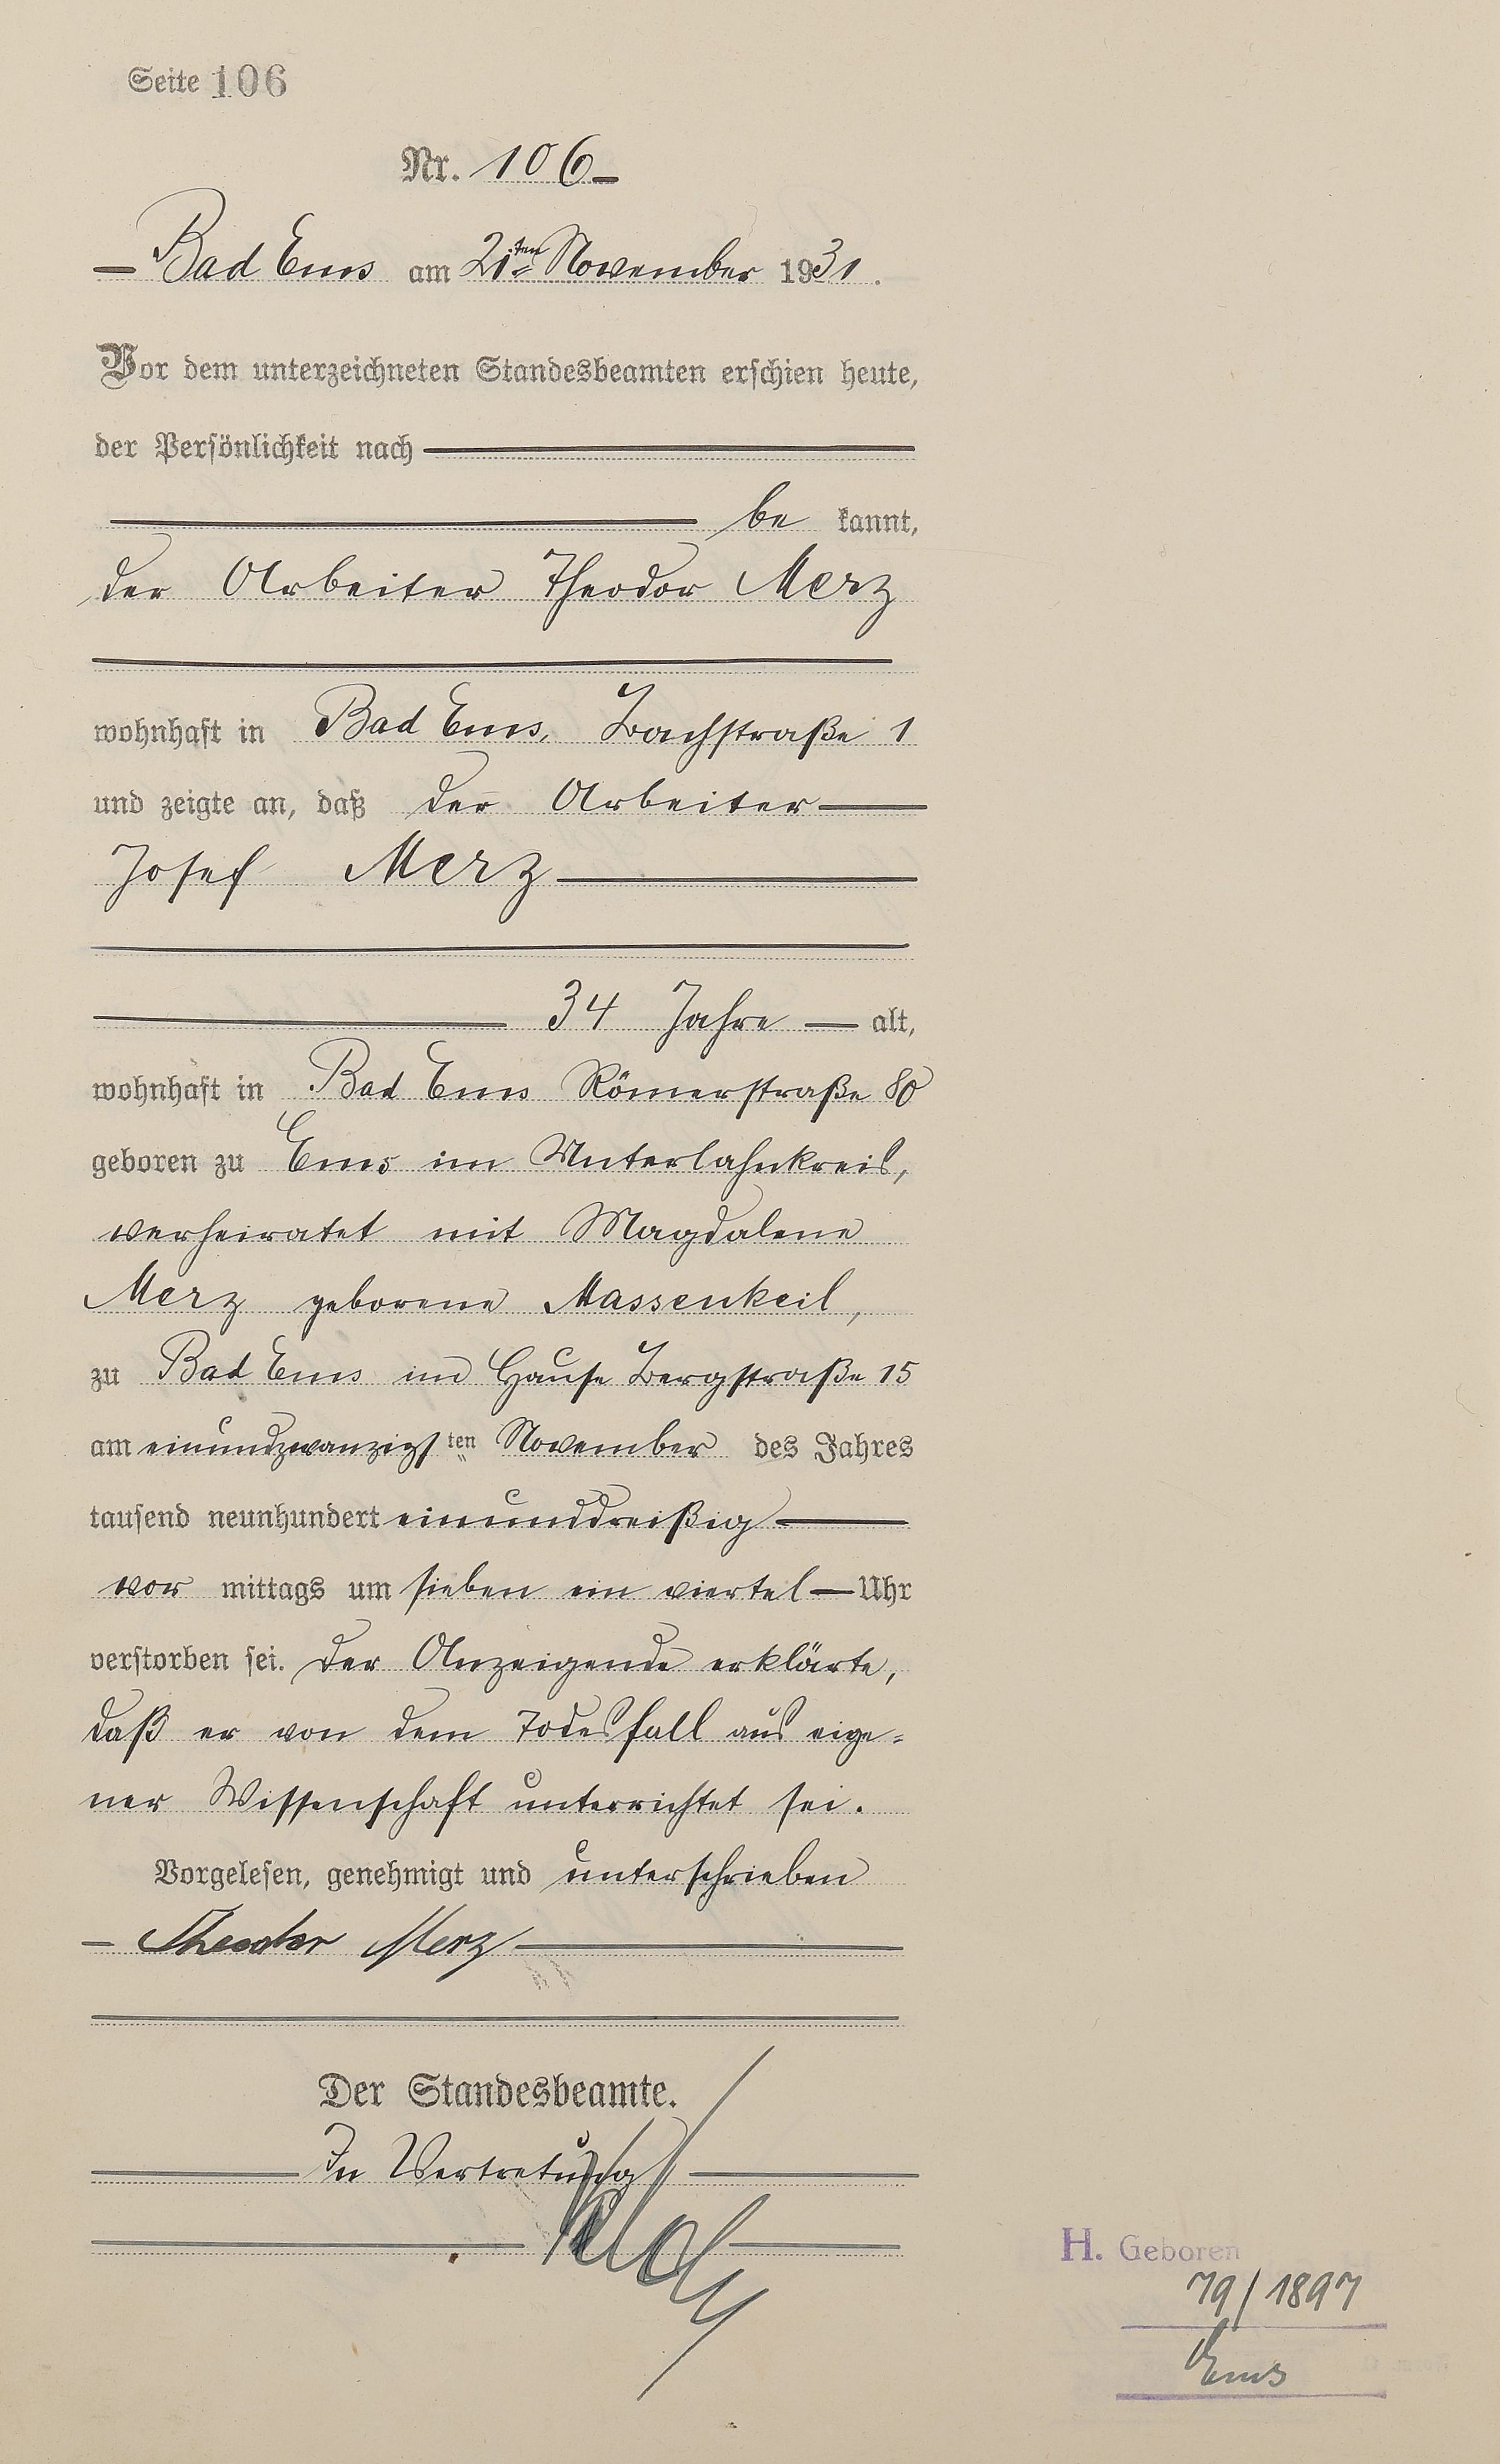 Seite 106
Nr. 106
Bad Ems am 21ten November 1931.
Vor dem unterzeichneten Standesbeamten erschien heute,
der Persönlichkeit nach
be kannt,
der Arbeiter Theodor Merz
wohnhaft in Bad Ems, Bachstraße 1
und zeigte an, daß der Arbeiter
Josef Merz
34 Jahre alt,
wohnhaft in Bad Ems Römerstraße 80
geboren zu Ems im Unterlahnkreis,
verheiratet mit Magdalene
Merz geborene Massenkeil,
zu Bad Ems im Hause Bergstraße 15
am einundzwanzigsten November des Jahres
tausend neunhundert einunddreißig
vor mittags um sieben ein viertel Uhr
verstorben sei. Der Anzeigende erklärte,
daß er von dem Todesfall aus eige=
ner Wissenschaft unterrichtet sei.
Vorgelesen, genehmigt und unterschrieben
Theodor Merz
Der Standesbeamte.
In Vertretung
H. Geboren
79/1897
Ems